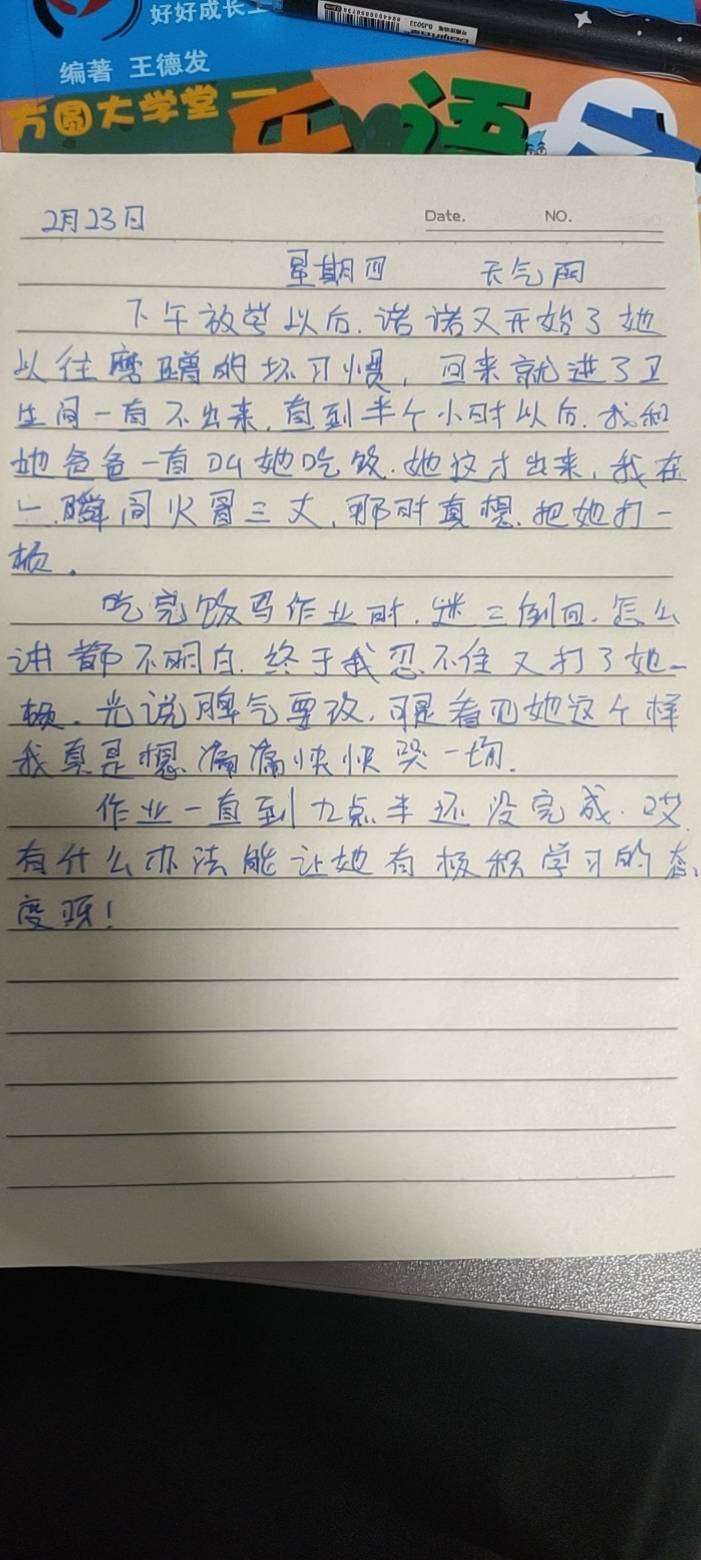 好好成长
编著 王德发
方圆大学堂
语
2月23日
Date. NO.
星期四 天气雨
下午放学以后.诺诺又开始了她
以往磨蹭的坏习惯,回来就进了卫
生间一直不出来.直到半个小时以后.我和
她爸爸一直叫她吃饭.她这才出来,我在
一瞬间火冒三丈,那时真想.把她打一
顿.
吃完饭写作业时.迷三倒四.怎么
讲都不明白.终于我忍不住又打了她一
顿.光说脾气要改,可是看见她这个样
我真是想痛痛快快哭一场.
作业一直到九点半还没完成.哎
有什么办法能让她有极积学习的态
度呀!